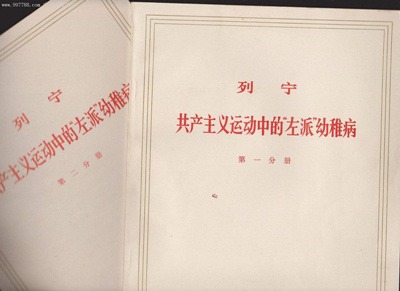 www.997788.com
列宁
共产主义运动中的"左派"幼稚病
第二分册
列宁
共产主义运动中的"左派"幼稚病
第一分册